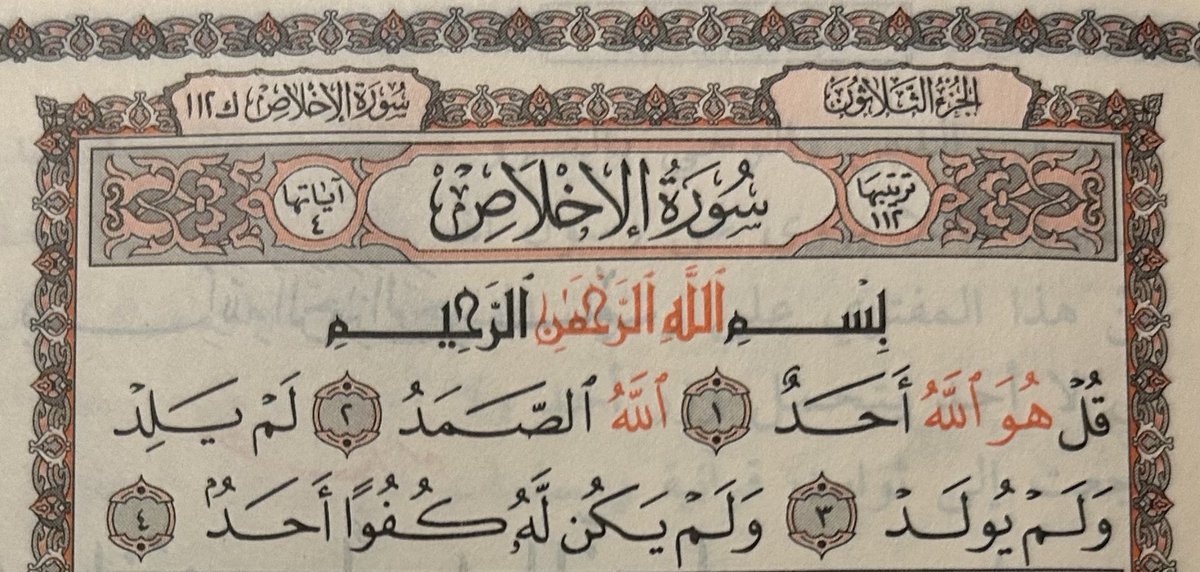 الجزء الثلاثون
سورة الإخلاص ك ١١٢
ترتيبها ١١٢
سُورَةُ الإِخْلَاصِ
آياتها ٤
بِسْمِ اللَّهِ الرَّحْمَٰنِ الرَّحِيمِ
قُلْ هُوَ ٱللَّهُ أَحَدٌ ١ ٱللَّهُ ٱلصَّمَدُ ٢ لَمْ يَلِدْ
وَلَمْ يُولَدْ ٣ وَلَمْ يَكُن لَّهُۥ كُفُوًا أَحَدُۢ ٤